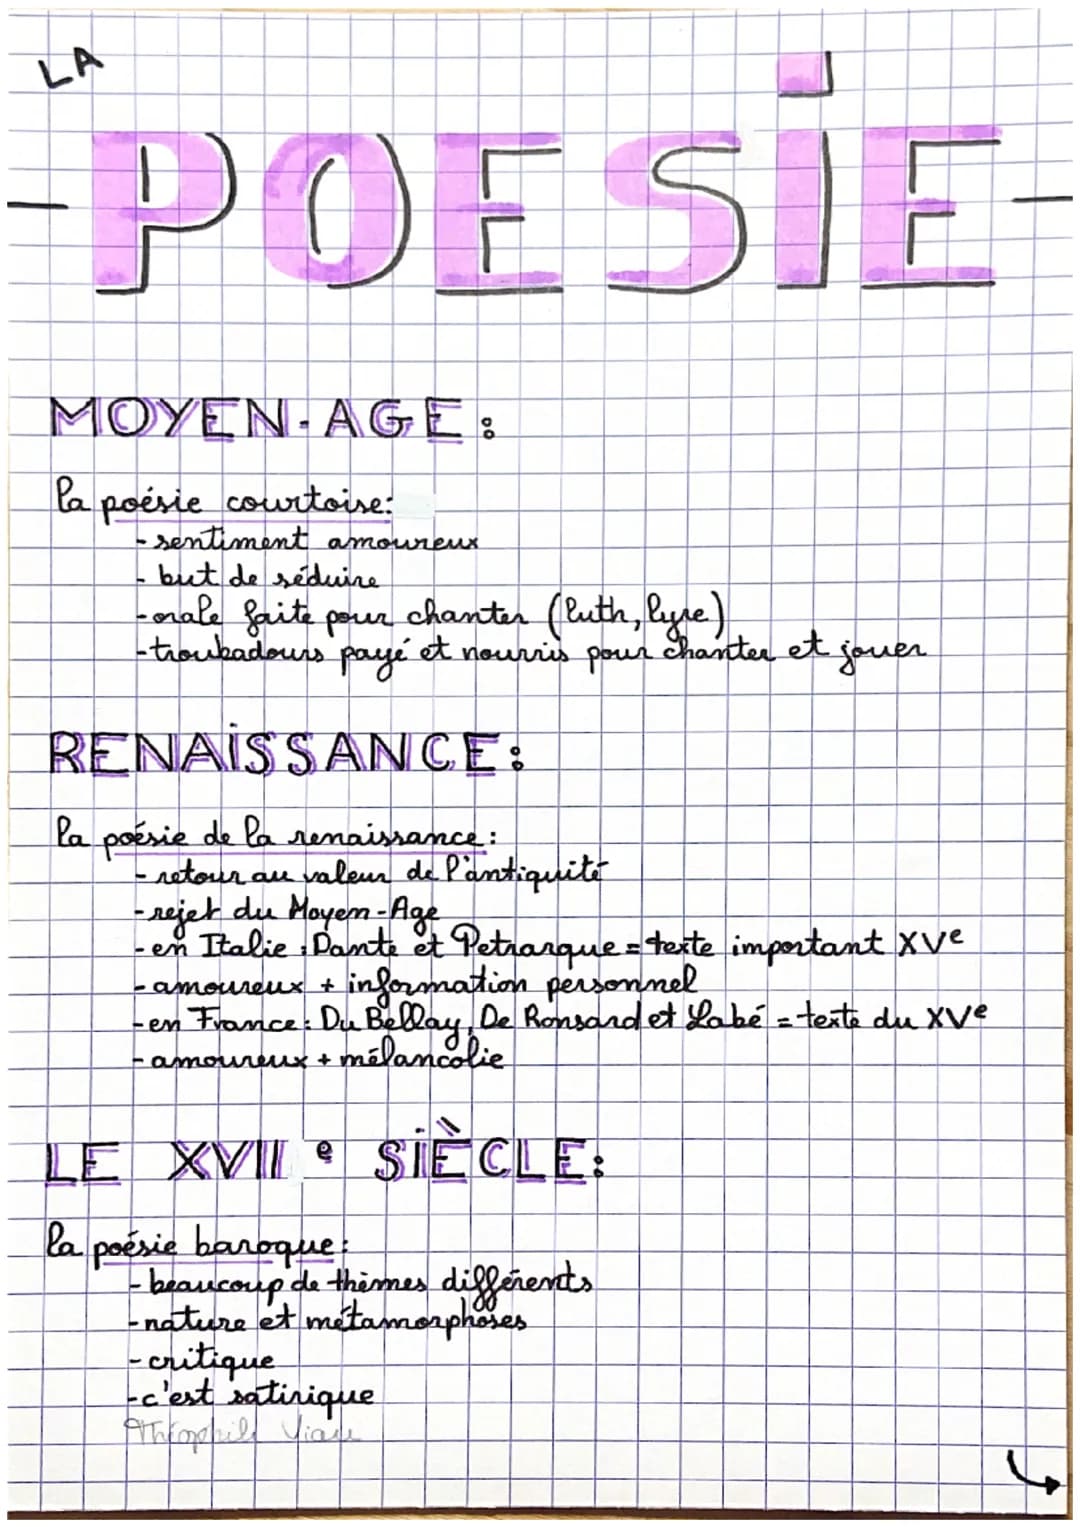 LA
POESIE
MOYEN-AGE:
la poésie courtoise:
- sentiment amoureux
- but de séduire
- orale faite pour chanter (luth, lyre)
- troubadours payé et nourris pour chanter et jouer
RENAISSANCE:
la poésie de la renaissance:
- retour au valeur de l'antiquité
- rejet du Moyen-Age
- en Italie : Dante et Petrarque = texte important XVe
- amoureux + information personnel
- en France : Du Bellay, De Ronsard et Labé = texte du XVe
- amoureux + mélancolie
LE XVII e SIÈCLE:
la poésie baroque:
- beaucoup de thèmes différents
- nature et métamorphoses
- critique
- c'est satirique
Théophile Viau